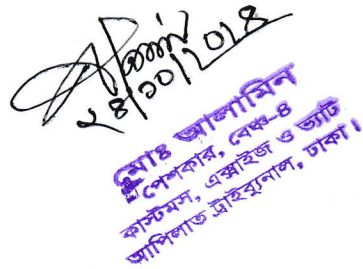 ২৪/১০/২০১৪
মোঃ আলামিন
পেশকার, বেঞ্চ-৪
কাস্টমস, এক্সাইজ ও ভ্যাট
আপিলাত ট্রাইব্যুনাল, ঢাকা।